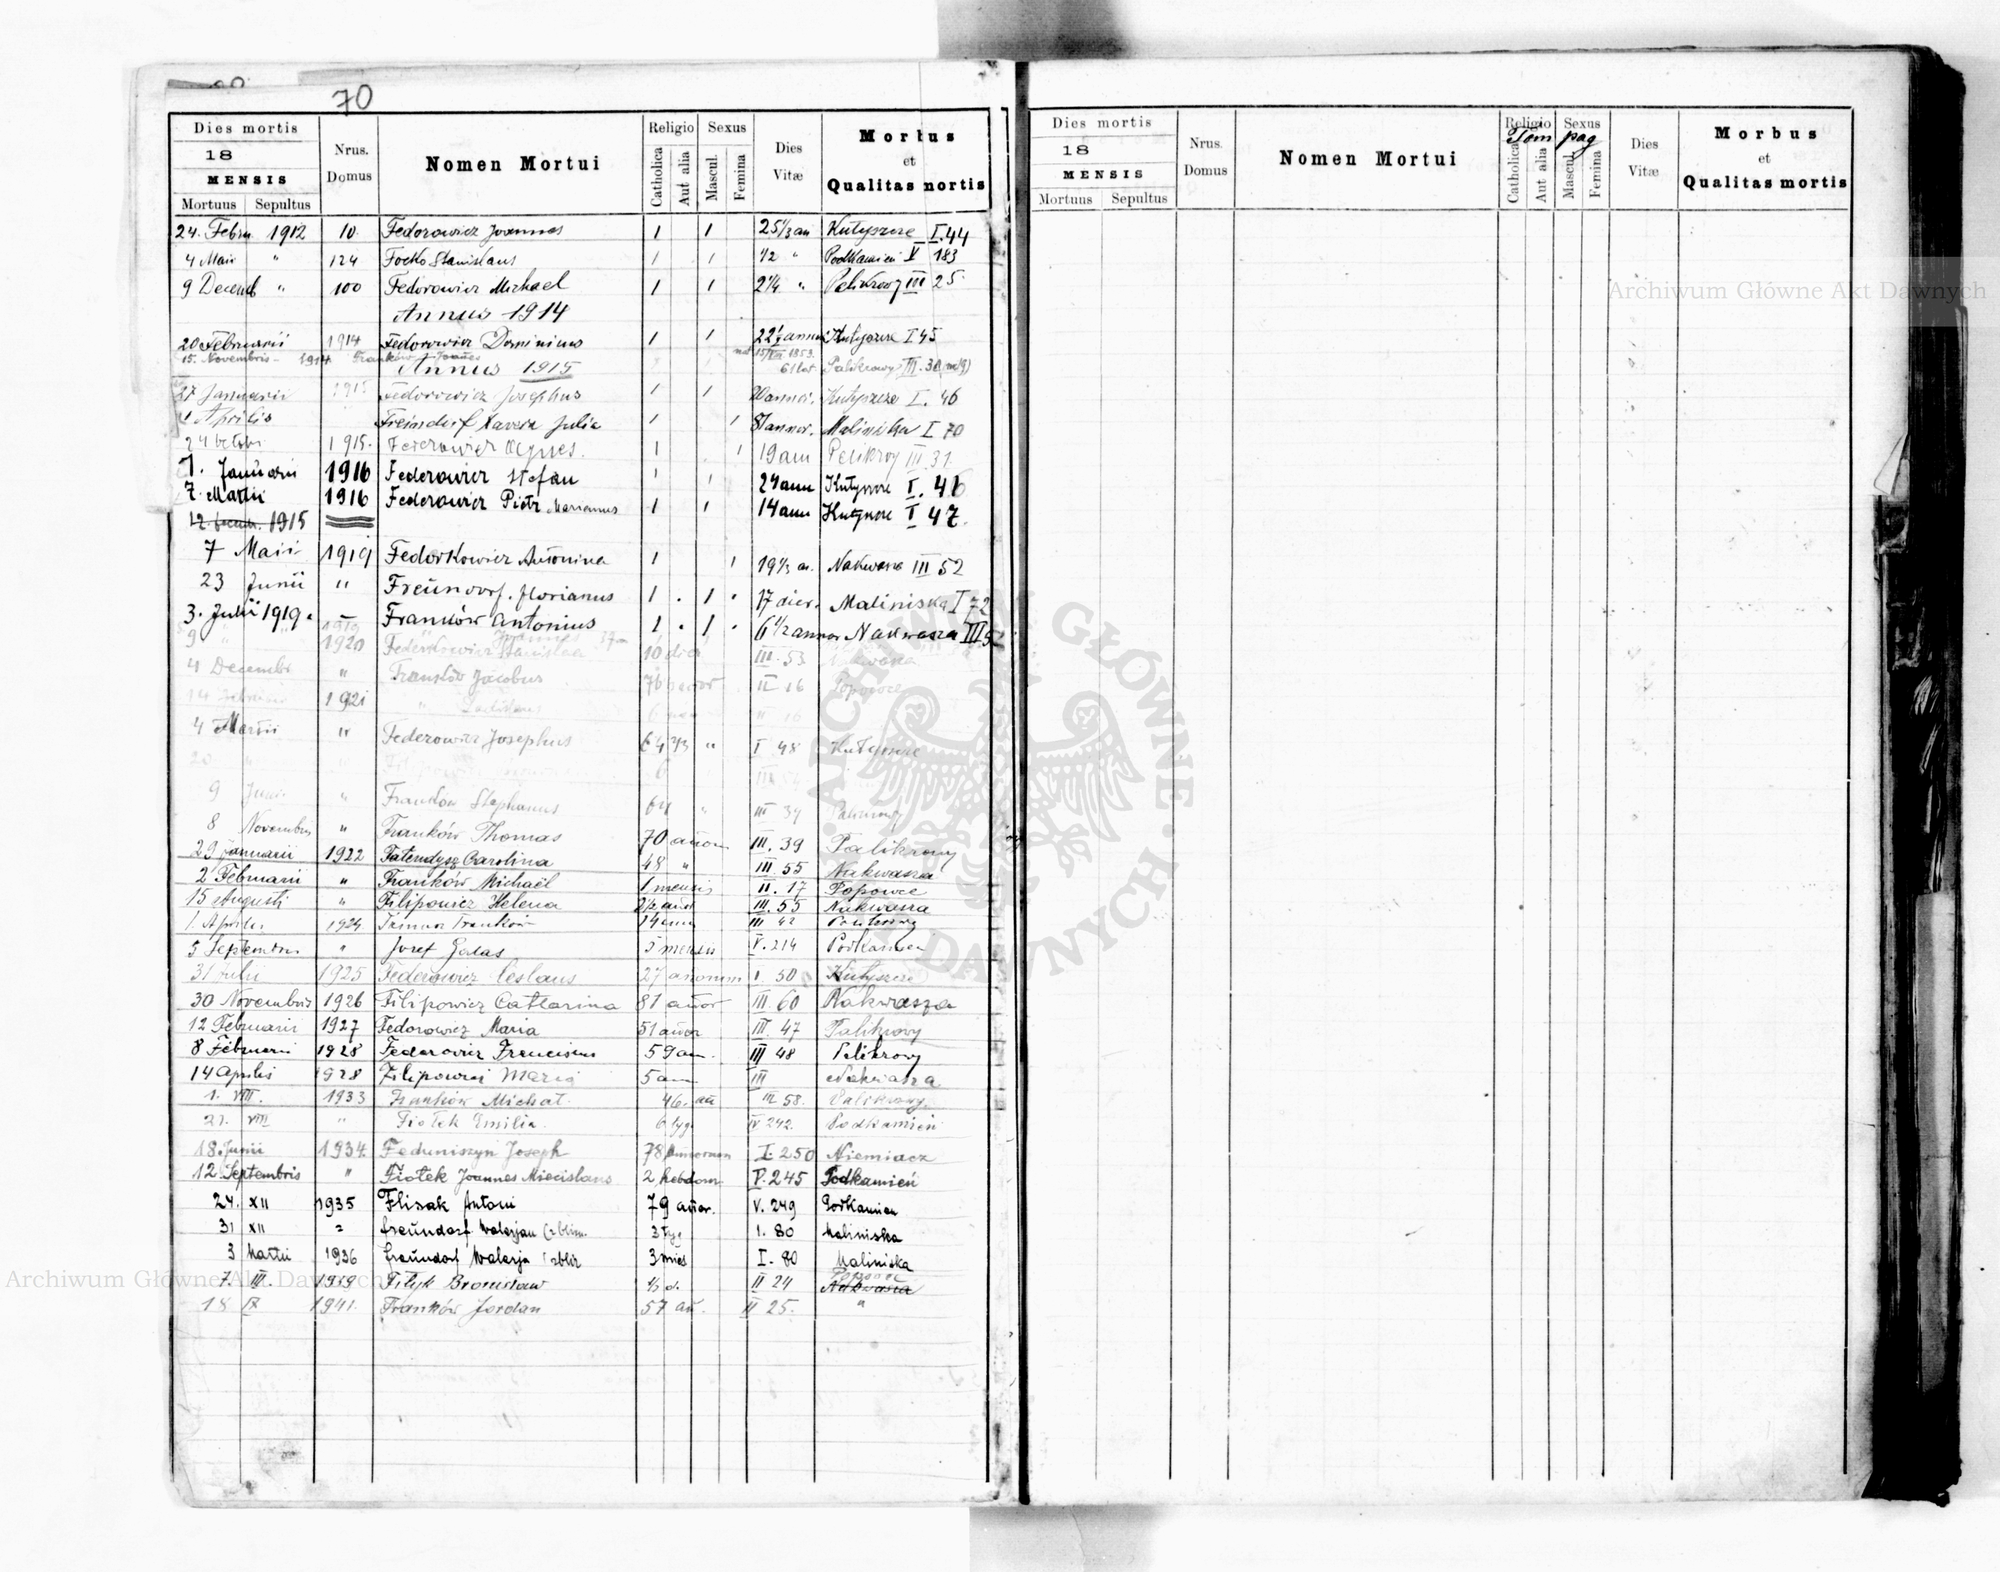 70
Dies mortis
18
MENSIS
Mortuus Sepultus
Nrus. Domus
Nomen Mortui
Religio
Catholica
Aut alia
Sexus
Mascul.
Femina
Dies Vitæ
Morbus et Qualitas mortis
24. Febru. 1912 10. Fedorowicz Joannes 1 1 25 1/3 an Kutyszcze I. 44
4 Maii " 124 Focko Stanislaus 1 1 1/2 " Podkamień V 183
9 Decemb " 100 Fedorowicz Michael 1 1 2 1/4 " Palikrowy III 25
Annus 1914
20 Februarii 1914 Fedorowicz Dominicus 1 1 Kutyszcze I 45
15. Novembris 1914 Franków Joannes 15/ 1853. 61 lat Palikrowy III. 30
Annus 1915
27 Januarii 1915 Fedorowicz Josephus 1 1 20 annor. Kutyszcze I. 46
1 Aprilis Freindorf Julia 1 1 annor. Maliniska I 70
1915. Federowicz Agnes. 1 1 19 ann Palikroy III 31.
1. Januarii 1916 Federowicz Stefan 1 1 24 ann Kutyszcze I. 46
7. Martii 1916 Federowicz Piotr Marianus 1 1 14 ann Kutyszcze I 47.
12 1915
7 Maii 1919 Fedorkowicz Antonina 1 1 19 1/3 an. Nakwasza III 52
23 Junii " Freundorf. Florianus 1 . 1 . 17 dier. Maliniska I 72
3. Julii 1919. Franków Antonius 1 . 1 . 6 1/2 annor Nakwasza III
9 1920 10 dier III. 53 Nakwasza
4 Decembr " Franków Jacobus 76 II 16 Popowce
14 1921 "
4 Martii " Federowicz Josephus 64 2/3 " I 48 Kutyszcze
20
9 Junii " Franków Stephanus 64 " III 34 Palikrowy
8 Novembris " Franków Thomas 70 annor III. 39 Palikrowy
29 Januarii 1922 Fatendysz Carolina 48 " III 55 Nakwasza
2 Februarii " Franków Michaël 1 mensis II. 17 Popowce
15 Augusti " Filipowicz Helena 2 1/2 annor III. 55 Nakwasza
1. Aprilis 1924 Franków 14 ann III 42 Palikrowy
5 Septembris " Jozef Galas 5 mensis V. 214 Podkamień
31 Julii 1925 Federowicz Ceslaus 27 annorum I 50 Kutyszcze
30 Novembris 1926 Filipowicz Catharina 81 annor III. 60 Nakwasza
12 Februarii 1927 Fedorowicz Maria 51 annor III. 47 Palikrowy
8 Februarii 1928 Federowicz Franciscus 59 an. III 48 Palikrowy
14 Aprilis 1928 Filipowicz Maria 5 ann III Nakwasza
1. VIII. 1933 Franków Michał. 46. an III 58. Palikrowy.
21. VIII " Fiołek Emilia 6 tyg. IV 242. Podkamień
18 Junii 1934. Feduniszyn Joseph 78 annorum I. 250 Niemiacz
12 Septembris " Fiołek Joannes Miecislaus 2 hebdom. V. 245 Podkamień
24. XII 1935 Flisak Antoni 79 annor. V. 249 Podkamien
31 XII " Freundorf Walerjan 3 tyg I. 80 Maliniska
3 Martii 1936 Freundorf Walerja 3 mies I. 80 Maliniska
7. III. 1939 Filyk Bronisław 1/2 d. II 24 Popowce Nakwasza
18 IX 1941. Franków Jordan 57 an. II 25. "
Dies mortis
18
MENSIS
Mortuus Sepultus
Nrus. Domus
Nomen Mortui
Religio
Catholica
Aut alia
Sexus
Mascul.
Femina
Tom pag
Dies Vitæ
Morbus et Qualitas mortis
Archiwum Główne Akt Dawnych
Archiwum Główne Akt Dawnych
ARCHIWUM GŁÓWNE AKT DAWNYCH